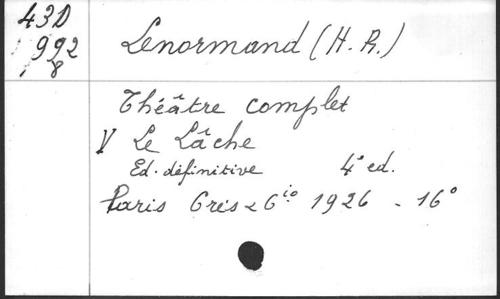 43D
992
8
Lenormand (H. R.)
Théâtre complet
V Le Lâche
Ed. définitive 4° ed.
Paris Crès & Cie 1926 - 16°